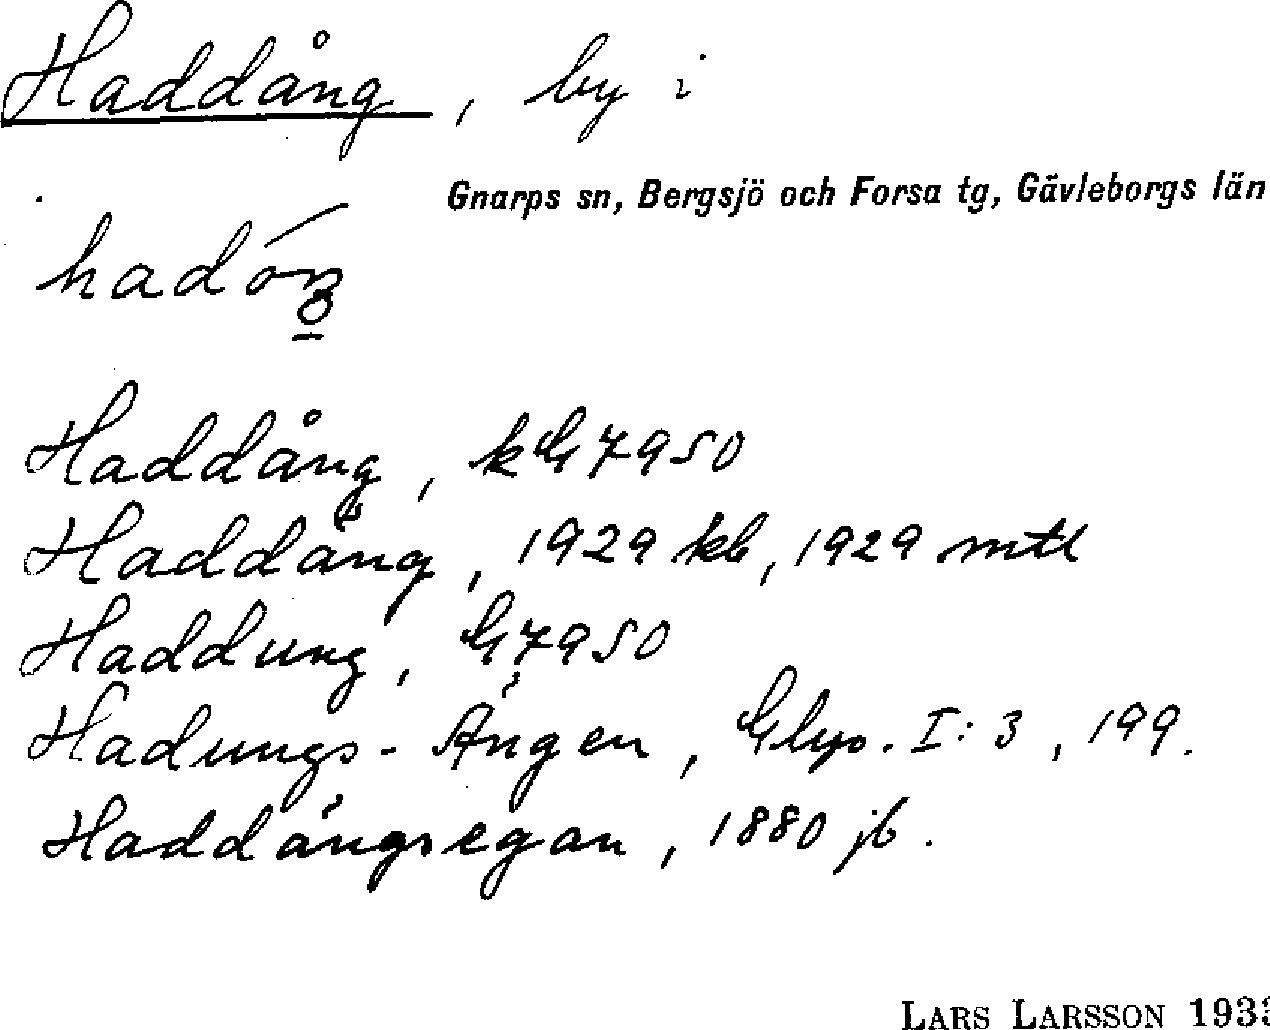 Haddång, by i
Gnarps sn, Bergsjö och Forsa tg, Gävleborgs län
Haddång, kG7950
Haddäng, 1929 kb, 1929 mtl
Haddung, G7950
Hadungs-Ängen, Glyo. I: 3, 199.
Haddängsegan, 1880 jb.
LARS LARSSON 193